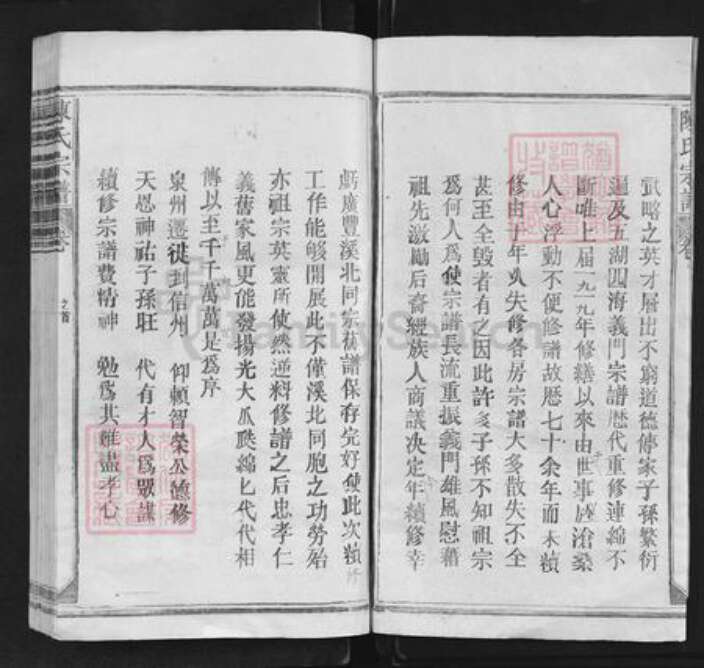 陳氏宗譜
武略之英才層出不窮道德傳家子孫繁衍
遍及五湖四海義門宗譜歷代重修連綿不
斷唯上屆一九一九年修繕以來由世事歷滄桑
人心浮動不便修譜故歷七十余年而未續
修由于年久失修各房宗譜大多散失不全
甚至全毀者有之因此許多子孫不知祖宗
爲何人爲使宗譜長流重振義門雄風慰藉
祖先激勵后裔經族人商議决定年續修幸
廣豐溪北同宗舊譜保存完好使此次續修
工作能够開展此不僅溪北同胞之功勞殆
亦祖宗英靈所使然逆料修譜之后忠孝仁
義舊家風更能發揚光大瓜瓞綿匕代代相
傳以至千千萬萬是爲序
泉州遷徙到信州　仰賴智榮公德修
天恩神祐子孫旺　代有才人爲眾謀
續修宗譜費精神　勉爲其難盡孝心
陳氏宗譜
卷
之首
FamilySearch